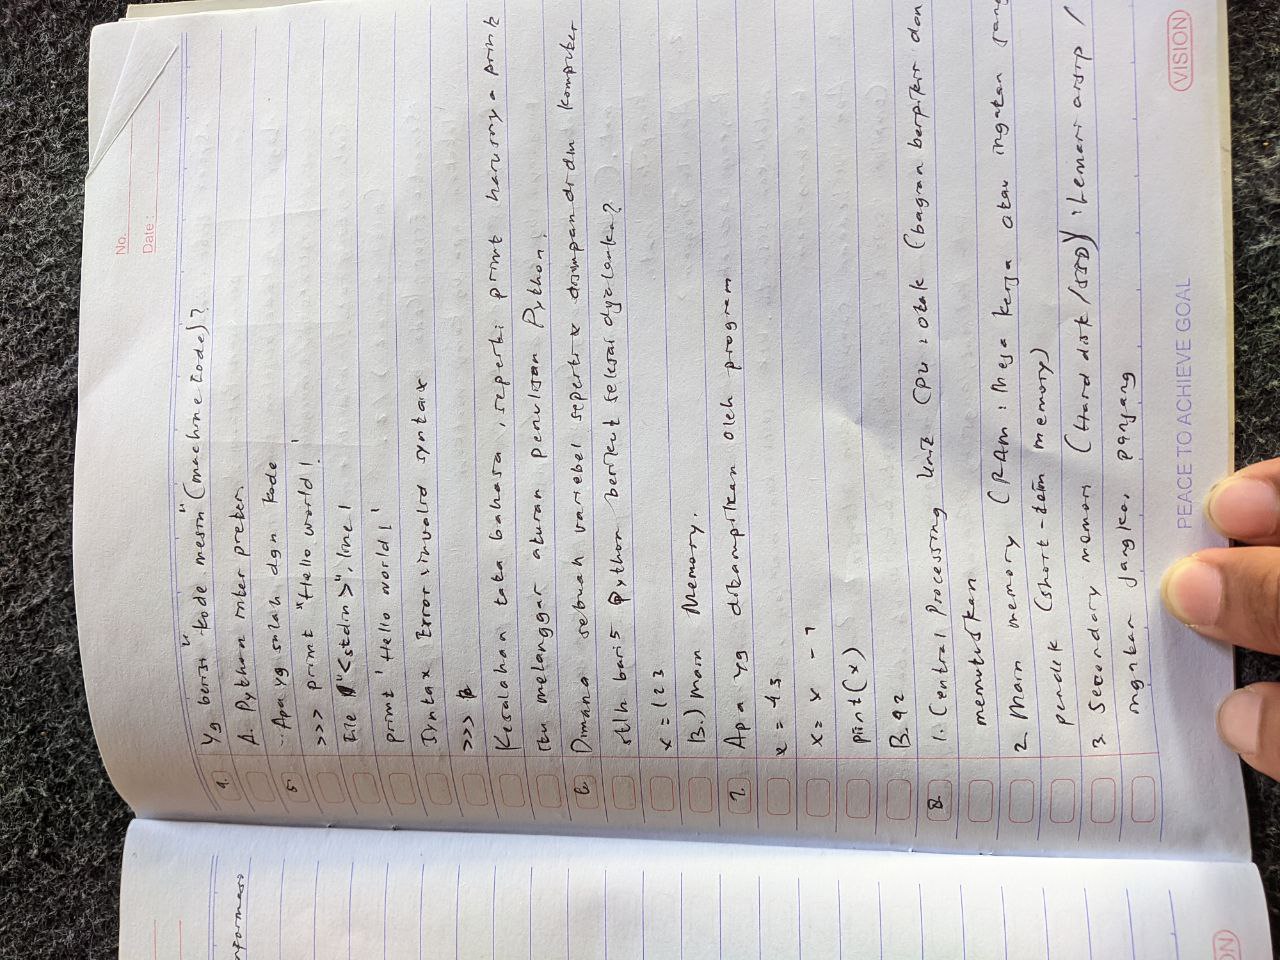 No.
Date:
4. Yg berisi "kode mesin" (machine kode)?
A. Python inter preter
5. Apa yg salah dgn kode
>>> primt "Hello world!'
File "<stdin>", line 1
primt 'Hello world!'
Syntax Error : invalid syntax
>>>
Kesalahan tata bahasa, seperti primt harusnya print
itu melanggar aturan penulisan Python.
6. Dimana sebuah variebel seperti x disimpan di dlm komputer
stlh baris Python berikut selesai dijalankan?
x = 123
B.) Main Memory.
7. Apa yg ditampilkan oleh program
x = 43
x = x - 1
print(x)
B. 42
8. 1. Central Processing Unit CPU : otak (bagian berpikir dan
memutuskan
2. Main memory (RAM : Meja kerja atau ingatan jang
pendek (short-term memory)
3. Secondary memori (Hard disk/SSD) : Lemari arsip /
ingatan jangka panjang
PEACE TO ACHIEVE GOAL
VISION
nformasi
ON